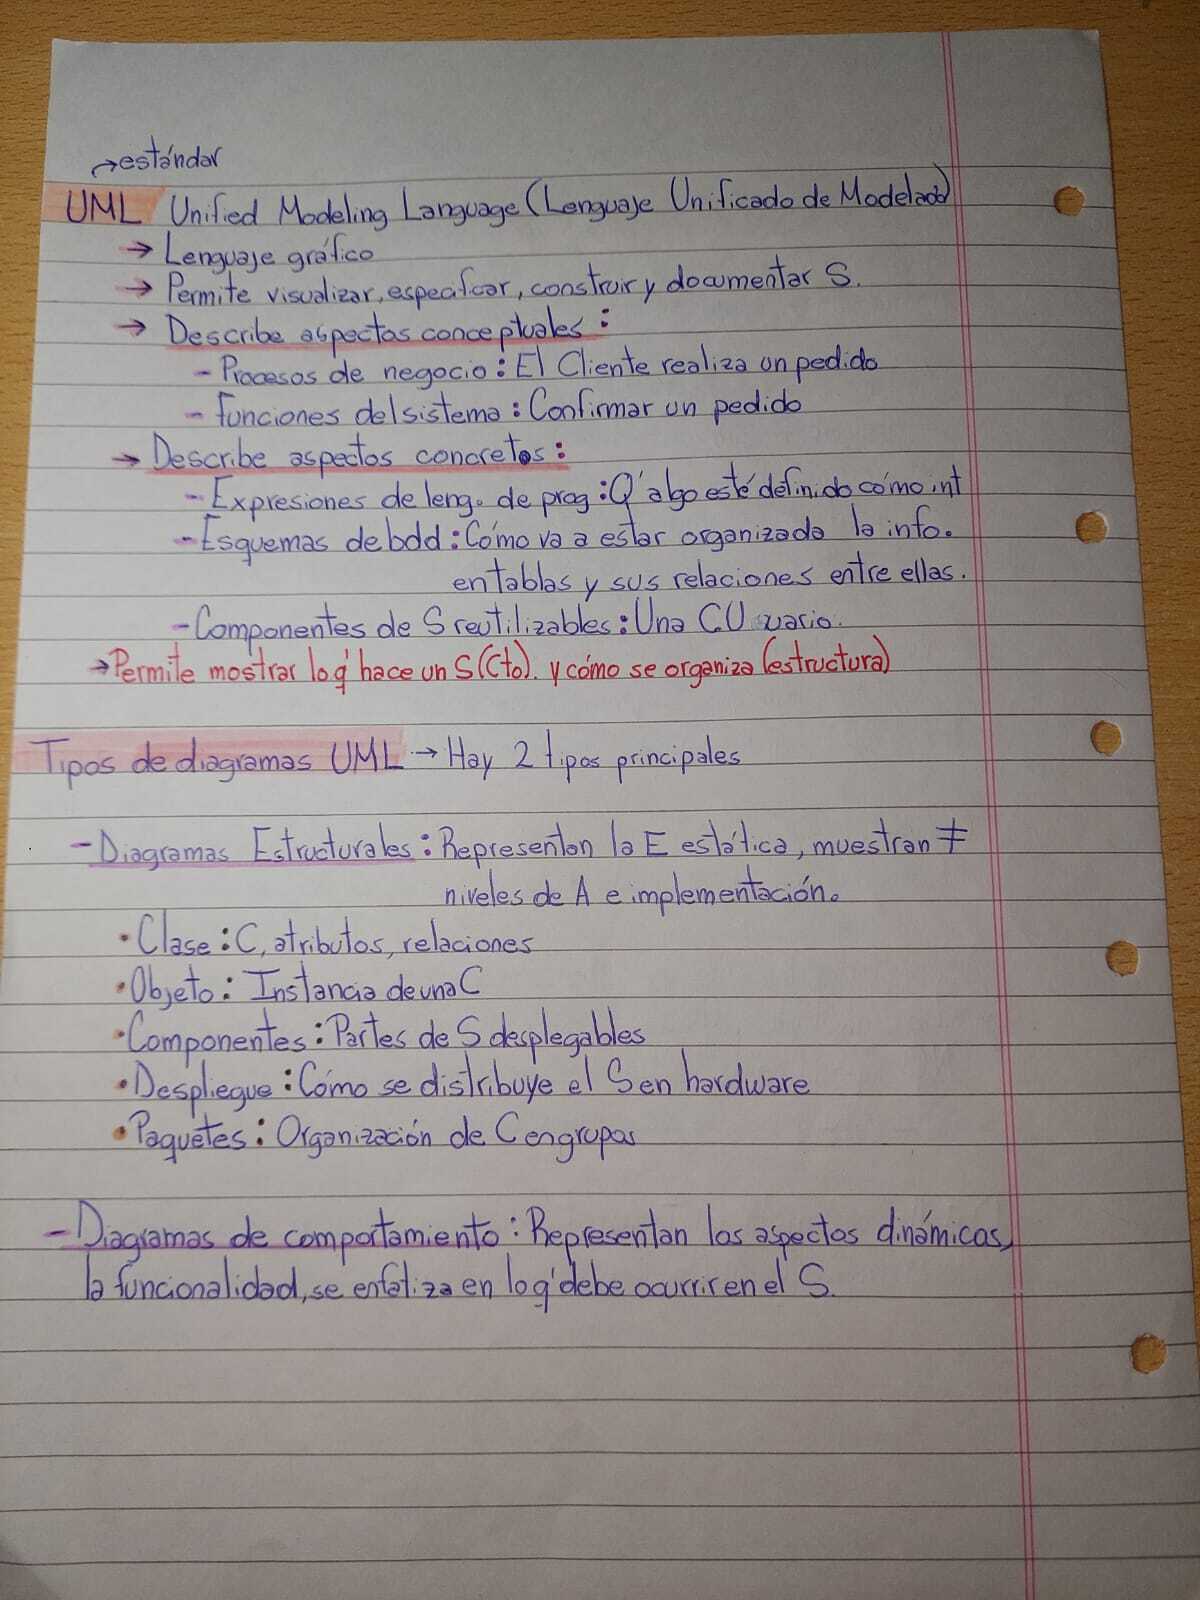 →estándar
UML Unified Modeling Language (Lenguaje Unificado de Modelado)
→ Lenguaje gráfico
→ Permite visualizar, especificar, construir y documentar S.
→ Describe aspectos conceptuales:
- Procesos de negocio: El Cliente realiza un pedido
- Funciones del sistema: Confirmar un pedido
→ Describe aspectos concretos:
- Expresiones de leng. de prog: Q' algo esté definido cómo int
- Esquemas de bdd: Cómo va a estar organizada la info.
en tablas y sus relaciones entre ellas.
- Componentes de S reutilizables: Una C Usuario.
→ Permite mostrar lo q' hace un S (Cto). y cómo se organiza (estructura)
Tipos de diagramas UML → Hay 2 tipos principales
- Diagramas Estructurales: Representan la E estática, muestran ≠
niveles de A e implementación.
• Clase: C, atributos, relaciones
• Objeto: Instancia de una C
• Componentes: Partes de S desplegables
• Despliegue: Cómo se distribuye el S en hardware
• Paquetes: Organización de C en grupos
- Diagramas de comportamiento: Representan los aspectos dinámicos,
la funcionalidad, se enfatiza en lo q' debe ocurrir en el S.